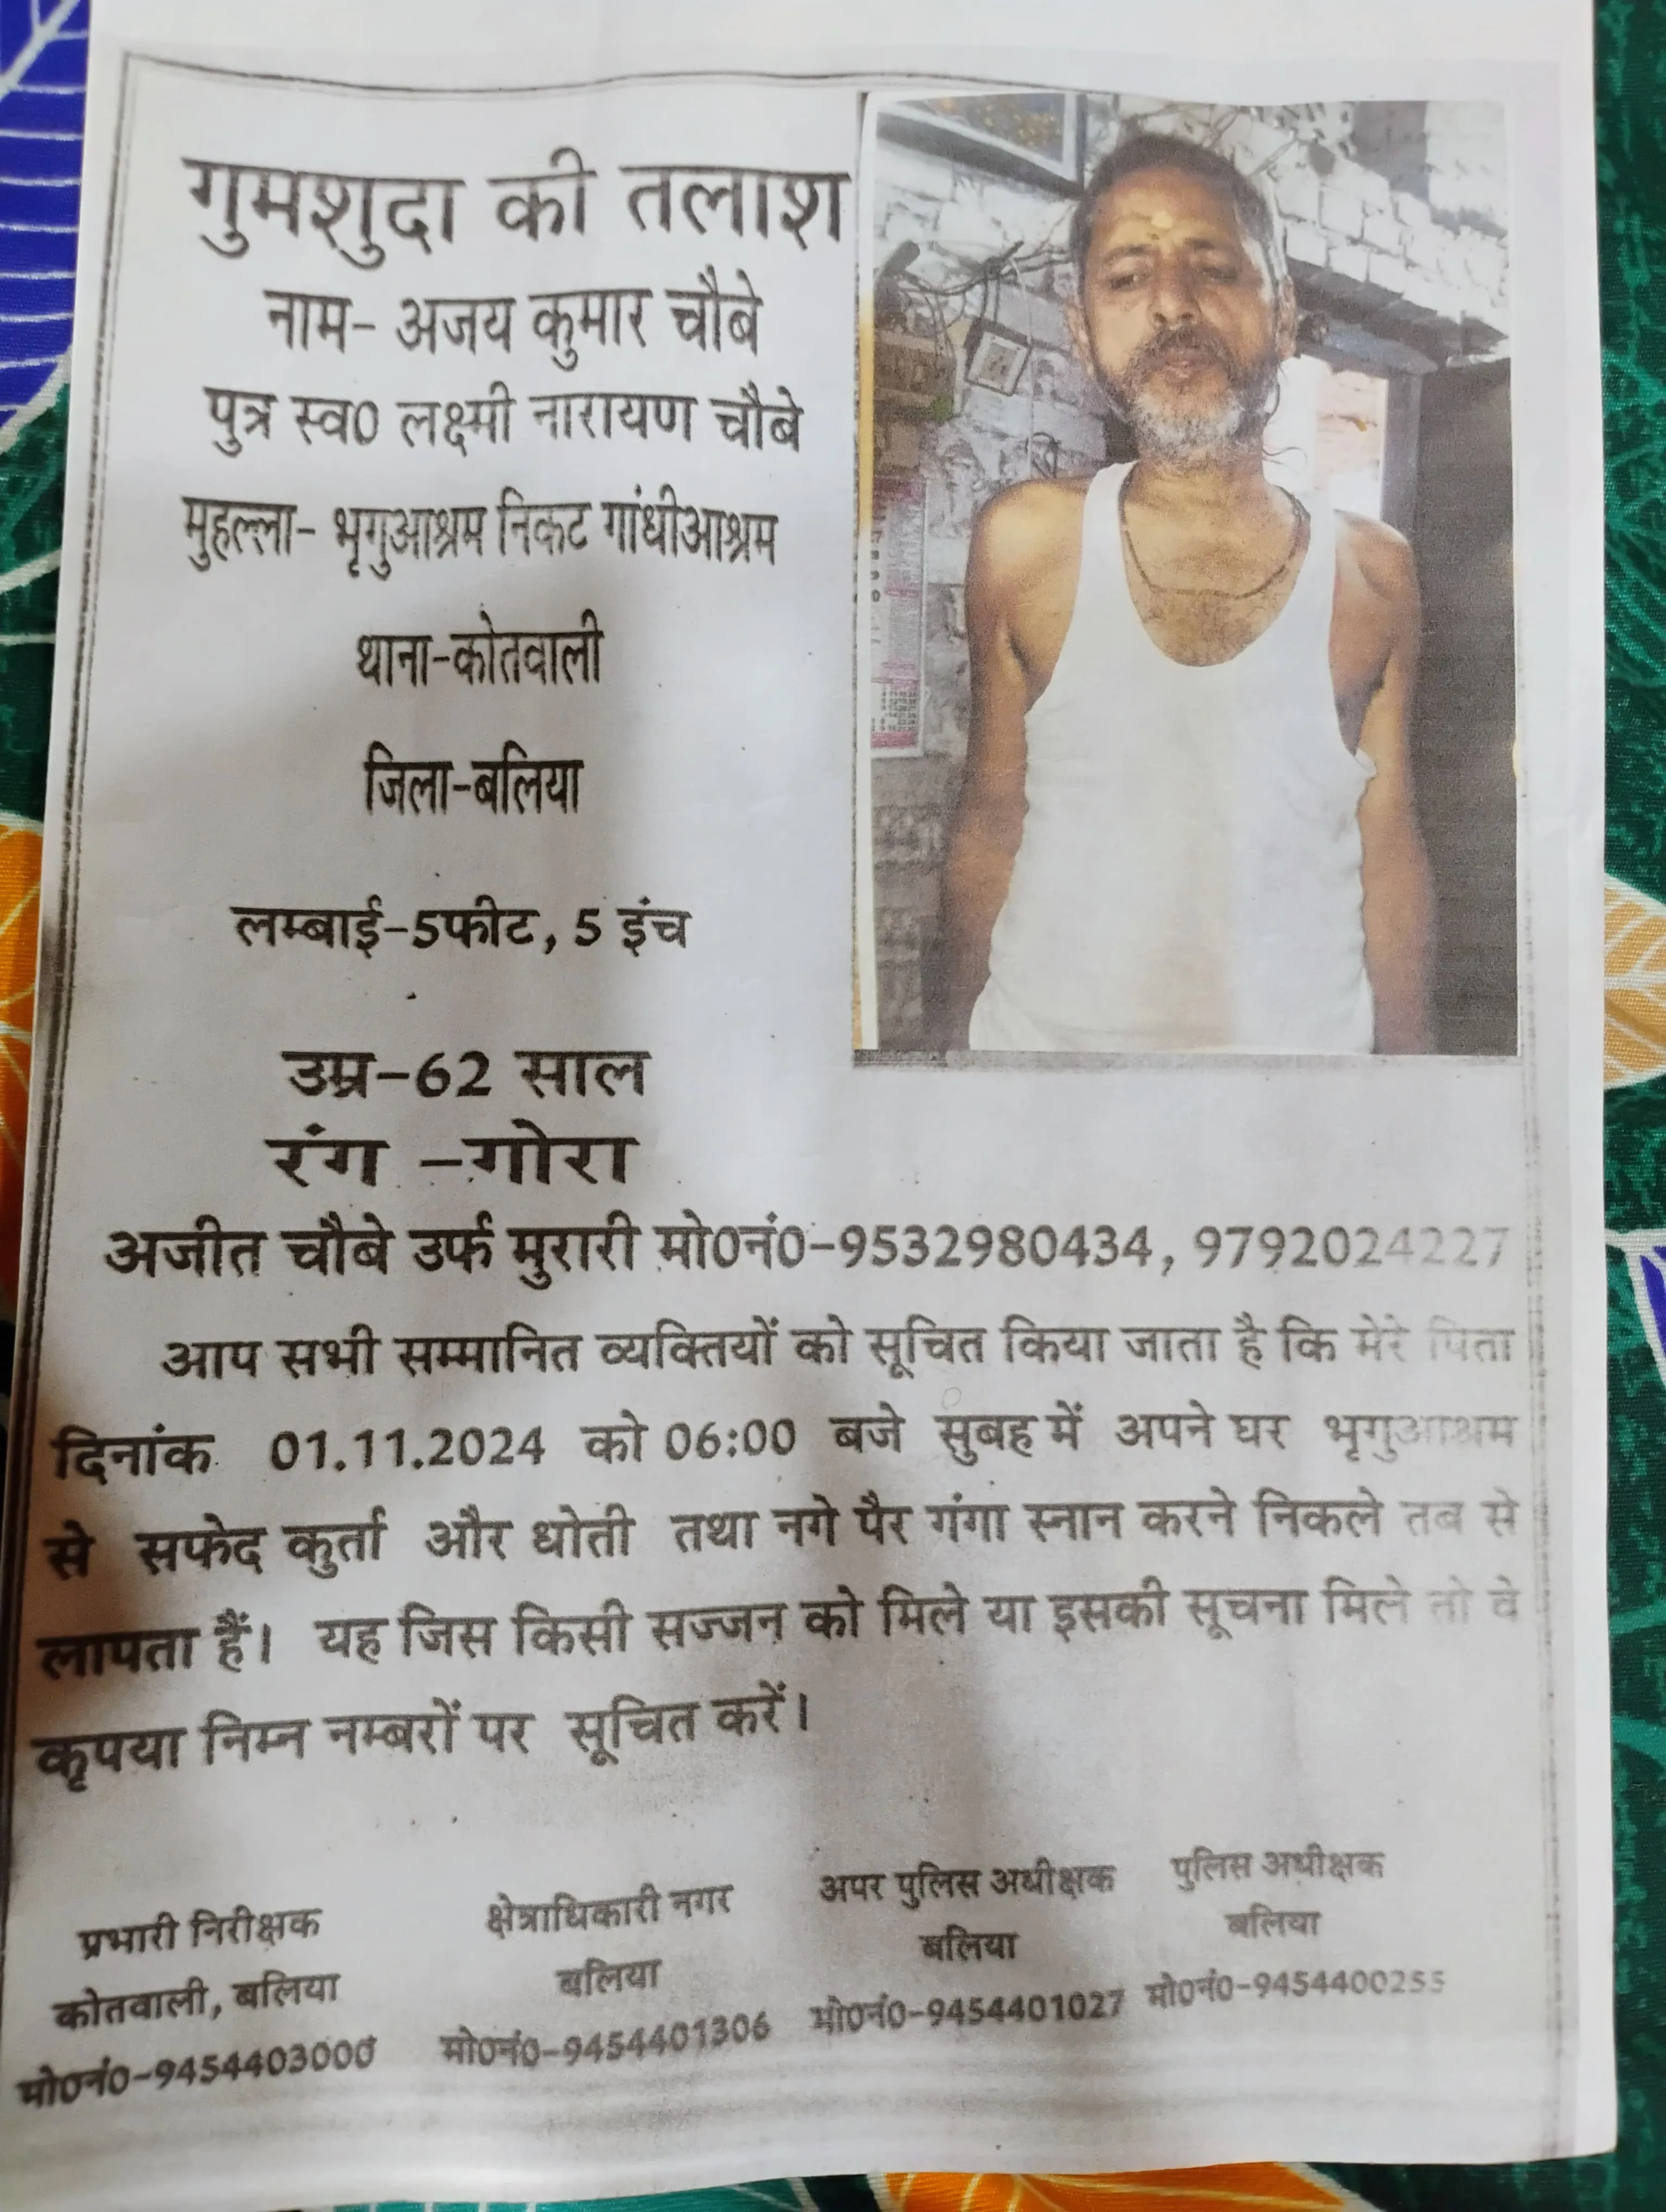 गुमशुदा की तलाश
नाम- अजय कुमार चौबे
पुत्र स्व0 लक्ष्मी नारायण चौबे
मुहल्ला- भृगुआश्रम निकट गांधीआश्रम
थाना-कोतवाली
जिला-बलिया
लम्बाई-5फीट, 5 इंच
उम्र-62 साल
रंग -गोरा
अजीत चौबे उर्फ मुरारी मो0नं0-9532980434, 9792024227
आप सभी सम्मानित व्यक्तियों को सूचित किया जाता है कि मेरे पिता
दिनांक 01.11.2024 को 06:00 बजे सुबह में अपने घर भृगुआश्रम
से सफेद कुर्ता और धोती तथा नगे पैर गंगा स्नान करने निकले तब से
लापता हैं। यह जिस किसी सज्जन को मिले या इसकी सूचना मिले तो वे
कृपया निम्न नम्बरों पर सूचित करें।
प्रभारी निरीक्षक
कोतवाली, बलिया
मो0नं0-9454403000
क्षेत्राधिकारी नगर
बलिया
मो0नं0-9454401306
अपर पुलिस अधीक्षक
बलिया
मो0नं0-9454401027
पुलिस अधीक्षक
बलिया
मो0नं0-9454400255